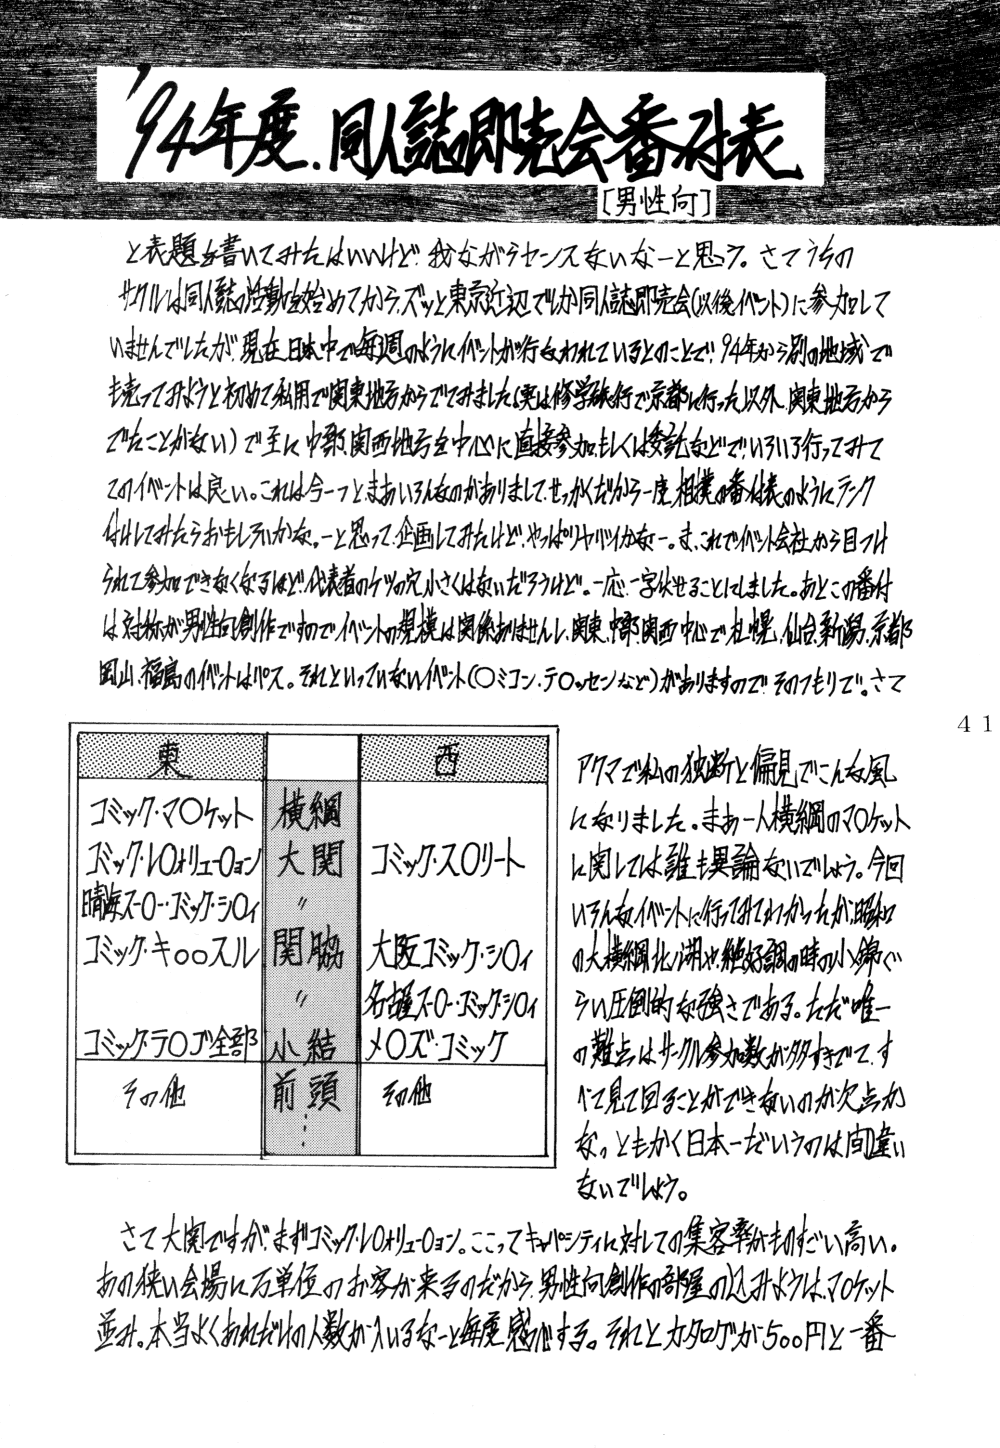 '94年度.同人誌即売会番付表
[男性向]
と表題を書いてみたはいいけど我ながらセンスないなーと思う。さてうちの
サークルは同人誌の活動を始めてからズッと東京近辺でしか同人誌即売会(以後イベント)に参加して
いませんでしたが、現在日本中で毎週のようにイベントが行なわれているとのことで'94年から別の地域で
も売ってみようと初めて私用で関東地方からでてみました(実は修学旅行で京都に行った以外、関東地方から
でたことがない)で主に中部、関西地方を中心に直接参加、もしくは委託などでいろいろ行ってみて
てのイベントは良い。これは今一つとまあいろんなのがありまして、せっかくだから一度、相撲の番付表のようにランク
付けしてみたらおもしろいかな。ーと思って、企画してみたけど、やっぱりヤバイかなー。ま、これでイベント会社から目つけ
られて参加できなくなるほど、代表者のケツの穴小さくはないだろうけど。一応、一字伏せることにしました。あとこの番付
は対称が男性向創作ですのでイベントの規模は関係ありませんし、関東、中部、関西中心で札幌、仙台、新潟、京都
岡山、福島のイベントはパス。それといっていないイベント(○ミコン、テ○ッセンなど)がありますので、そのつもりで。さて
41
東 西
コミック・マ○ケット 横綱
コミック・レ○ォリュー○ョン 大関 コミック・ス○リート
晴海ス○ー○ー・コミック・シ○ィ 〃
コミック・キ○○スル 関脇 大阪コミック・シ○ィ
〃 名古屋ス○ー○ー・コミック・シ○ィ
コミック・テ○プ全部 小結 メ○ズ・コミック
その他 前頭 その他
アクマで私の独断と偏見でこんな風
になりました。まあ一人横綱のマ○ケット
に関しては誰も異論ないでしょう。今回
いろんなイベントに行ってみてわかったが、昭和
の大横綱北ノ湖や、絶好調の時の小錦ぐ
らい圧倒的な強さである。ただ唯一
の難点はサークル参加数が多すぎてて、す
べて見て回ることができないのが欠点か
な。ともかく日本一だというのは間違い
ないでしょう。
さて大関ですが、まずコミック・レ○ォリュー○ョン。ここってキャパシティに対しての集客率がものすごい高い。
あの狭い会場に万単位のお客が来るのだから、男性向創作の部屋の込みようは、マ○ケット
並み。本当よくあれだけの人数が入いるなーと毎度感心する。それとカタログが500円と一番